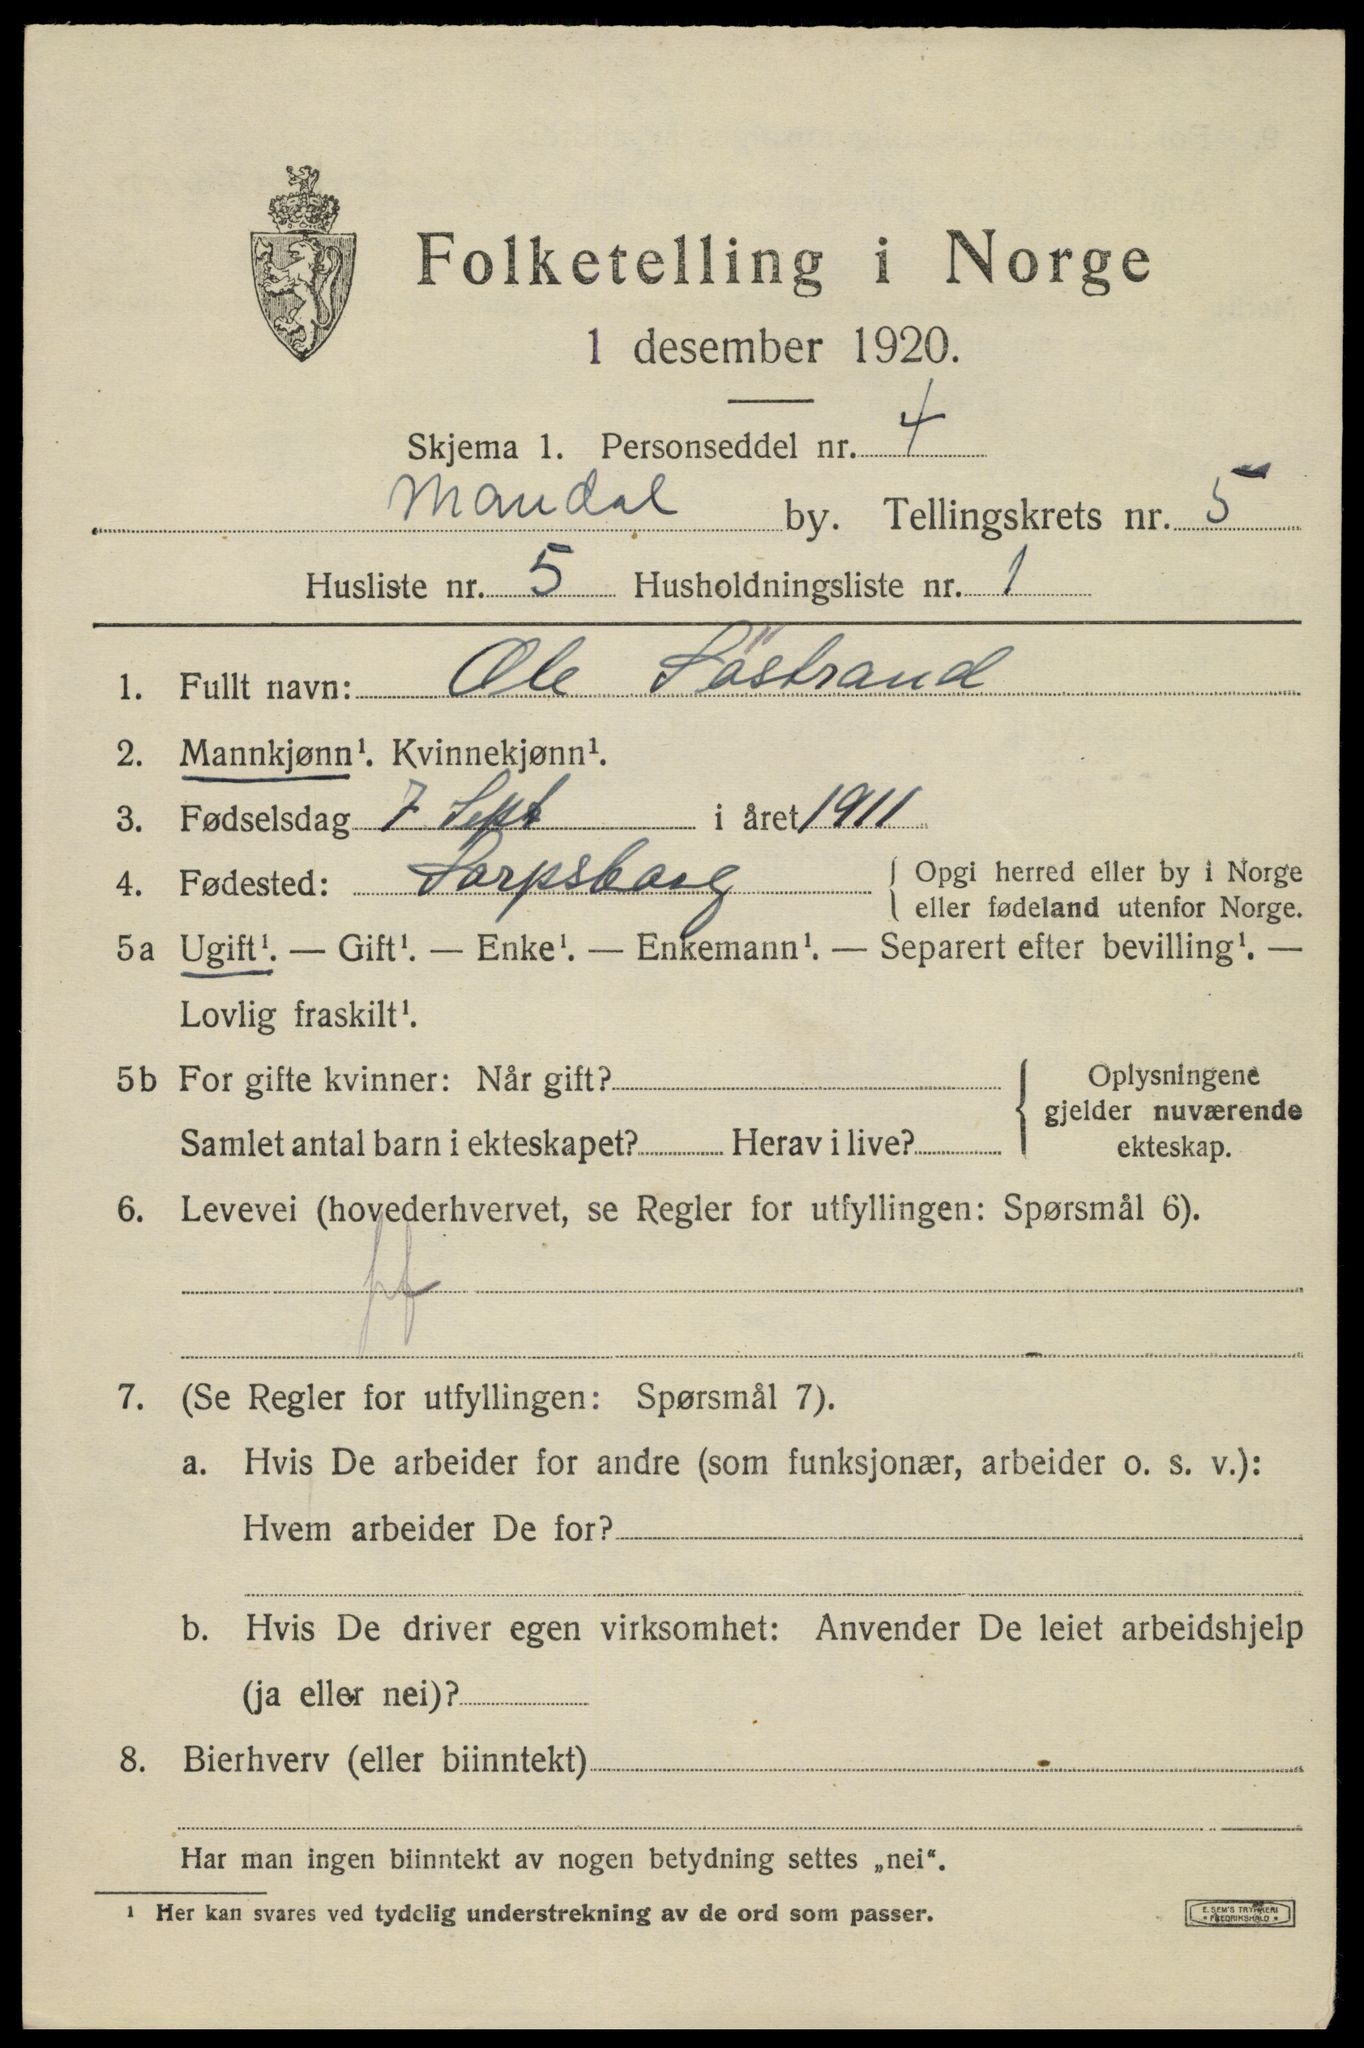 Folketelling i Norge
1 desember 1920.
Skjema 1. Personseddel nr. 4
Mandal by. Tellingskrets nr. 5
Husliste nr. 5 Husholdningsliste nr. 1
1. Fullt navn: Ole Söstrand
2. Mannkjønn¹. Kvinnekjønn¹.
3. Fødselsdag 7 Sept i året 1911
4. Fødested: Sarpsborg { Opgi herred eller by i Norge
eller fødeland utenfor Norge.
5a Ugift¹. — Gift¹. — Enke¹. — Enkemann¹. — Separert efter bevilling¹. —
Lovlig fraskilt¹.
5b For gifte kvinner: Når gift? { Oplysningene
gjelder nuværende
Samlet antal barn i ekteskapet? Herav i live? ekteskap.
6. Levevei (hovederhvervet, se Regler for utfyllingen: Spørsmål 6).
7. (Se Regler for utfyllingen: Spørsmål 7).
a. Hvis De arbeider for andre (som funksjonær, arbeider o. s. v.):
Hvem arbeider De for?
b. Hvis De driver egen virksomhet: Anvender De leiet arbeidshjelp
(ja eller nei)?
8. Bierhverv (eller biinntekt)
Har man ingen biinntekt av nogen betydning settes „nei“.
¹ Her kan svares ved tydelig understrekning av de ord som passer.
E. SEM'S TRYKKERI
* FREDRIKSHALD *